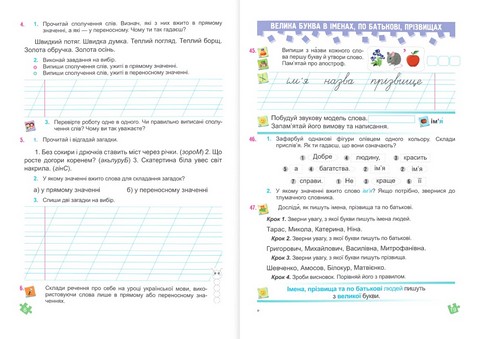 4. 1. Прочитай сполучення слів. Визнач, які з них вжито в прямому
значенні, а які — у переносному. Чому ти так гадаєш?
Швидкий потяг. Швидка думка. Теплий погляд. Теплий борщ.
Золота обручка. Золота осінь.
2. Виконай завдання на вибір.
Випиши сполучення слів, ужиті в прямому значенні.
Випиши сполучення слів, ужиті в переносному значенні.
3. Перевірте роботу одне в одного. Чи правильно виписані сполучення слів? Чому ви так уважаєте?
5. 1. Прочитай і відгадай загадки.
1. Без сокири і дрючків ставить міст через річки. (зороМ) 2. Що
росте догори коренем? (акьлуруБ) 3. Скатертина біла увес світ
накрила. (гінС).
2. У якому значенні вжито слова для складання загадок?
а) у прямому значенні б) у переносному значенні
3. Спиши дві загадки на вибір.
6. Склади речення про себе на уроці української мови, використовуючи слова лише в прямому або переносному значеннях.
ВЕЛИКА БУКВА В ІМЕНАХ, ПО БАТЬКОВІ, ПРІЗВИЩАХ
45. Випиши з назви кожного слова першу букву й утвори слово.
Пам'ятай про апостроф.
ім'я назва прізвище
Побудуй звукову модель слова.
ім'я
Запам'ятай його вимову та написання.
46. 1. Зафарбуй однакові фігури олівцем одного кольору. Склади
прислів'я. Як ти гадаєш, що вони означають?
Добре людину, красить
а багатства. ім'я ім'я
справи. Не краще її
2. У якому значенні вжито слово ім'я? Якщо потрібно, звернися до
тлумачного словника.
47. Досліди, як пишуться імена, прізвища та по батькові.
Крок 1. Зверни увагу, з якої букви пишуть імена людей.
Тарас, Микола, Катерина, Ніна.
Крок 2. Зверни увагу, з якої букви пишуть по батькові.
Григорович, Михайлович, Василівна, Митрофанівна.
Крок 3. Зверни увагу, з якої букви пишуть прізвища.
Шевченко, Амосов, Білокур, Матвієнко.
Крок 4. Зроби висновок. Порівняй його з правилом.
Імена, прізвища та по батькові людей пишуть
з великої букви.